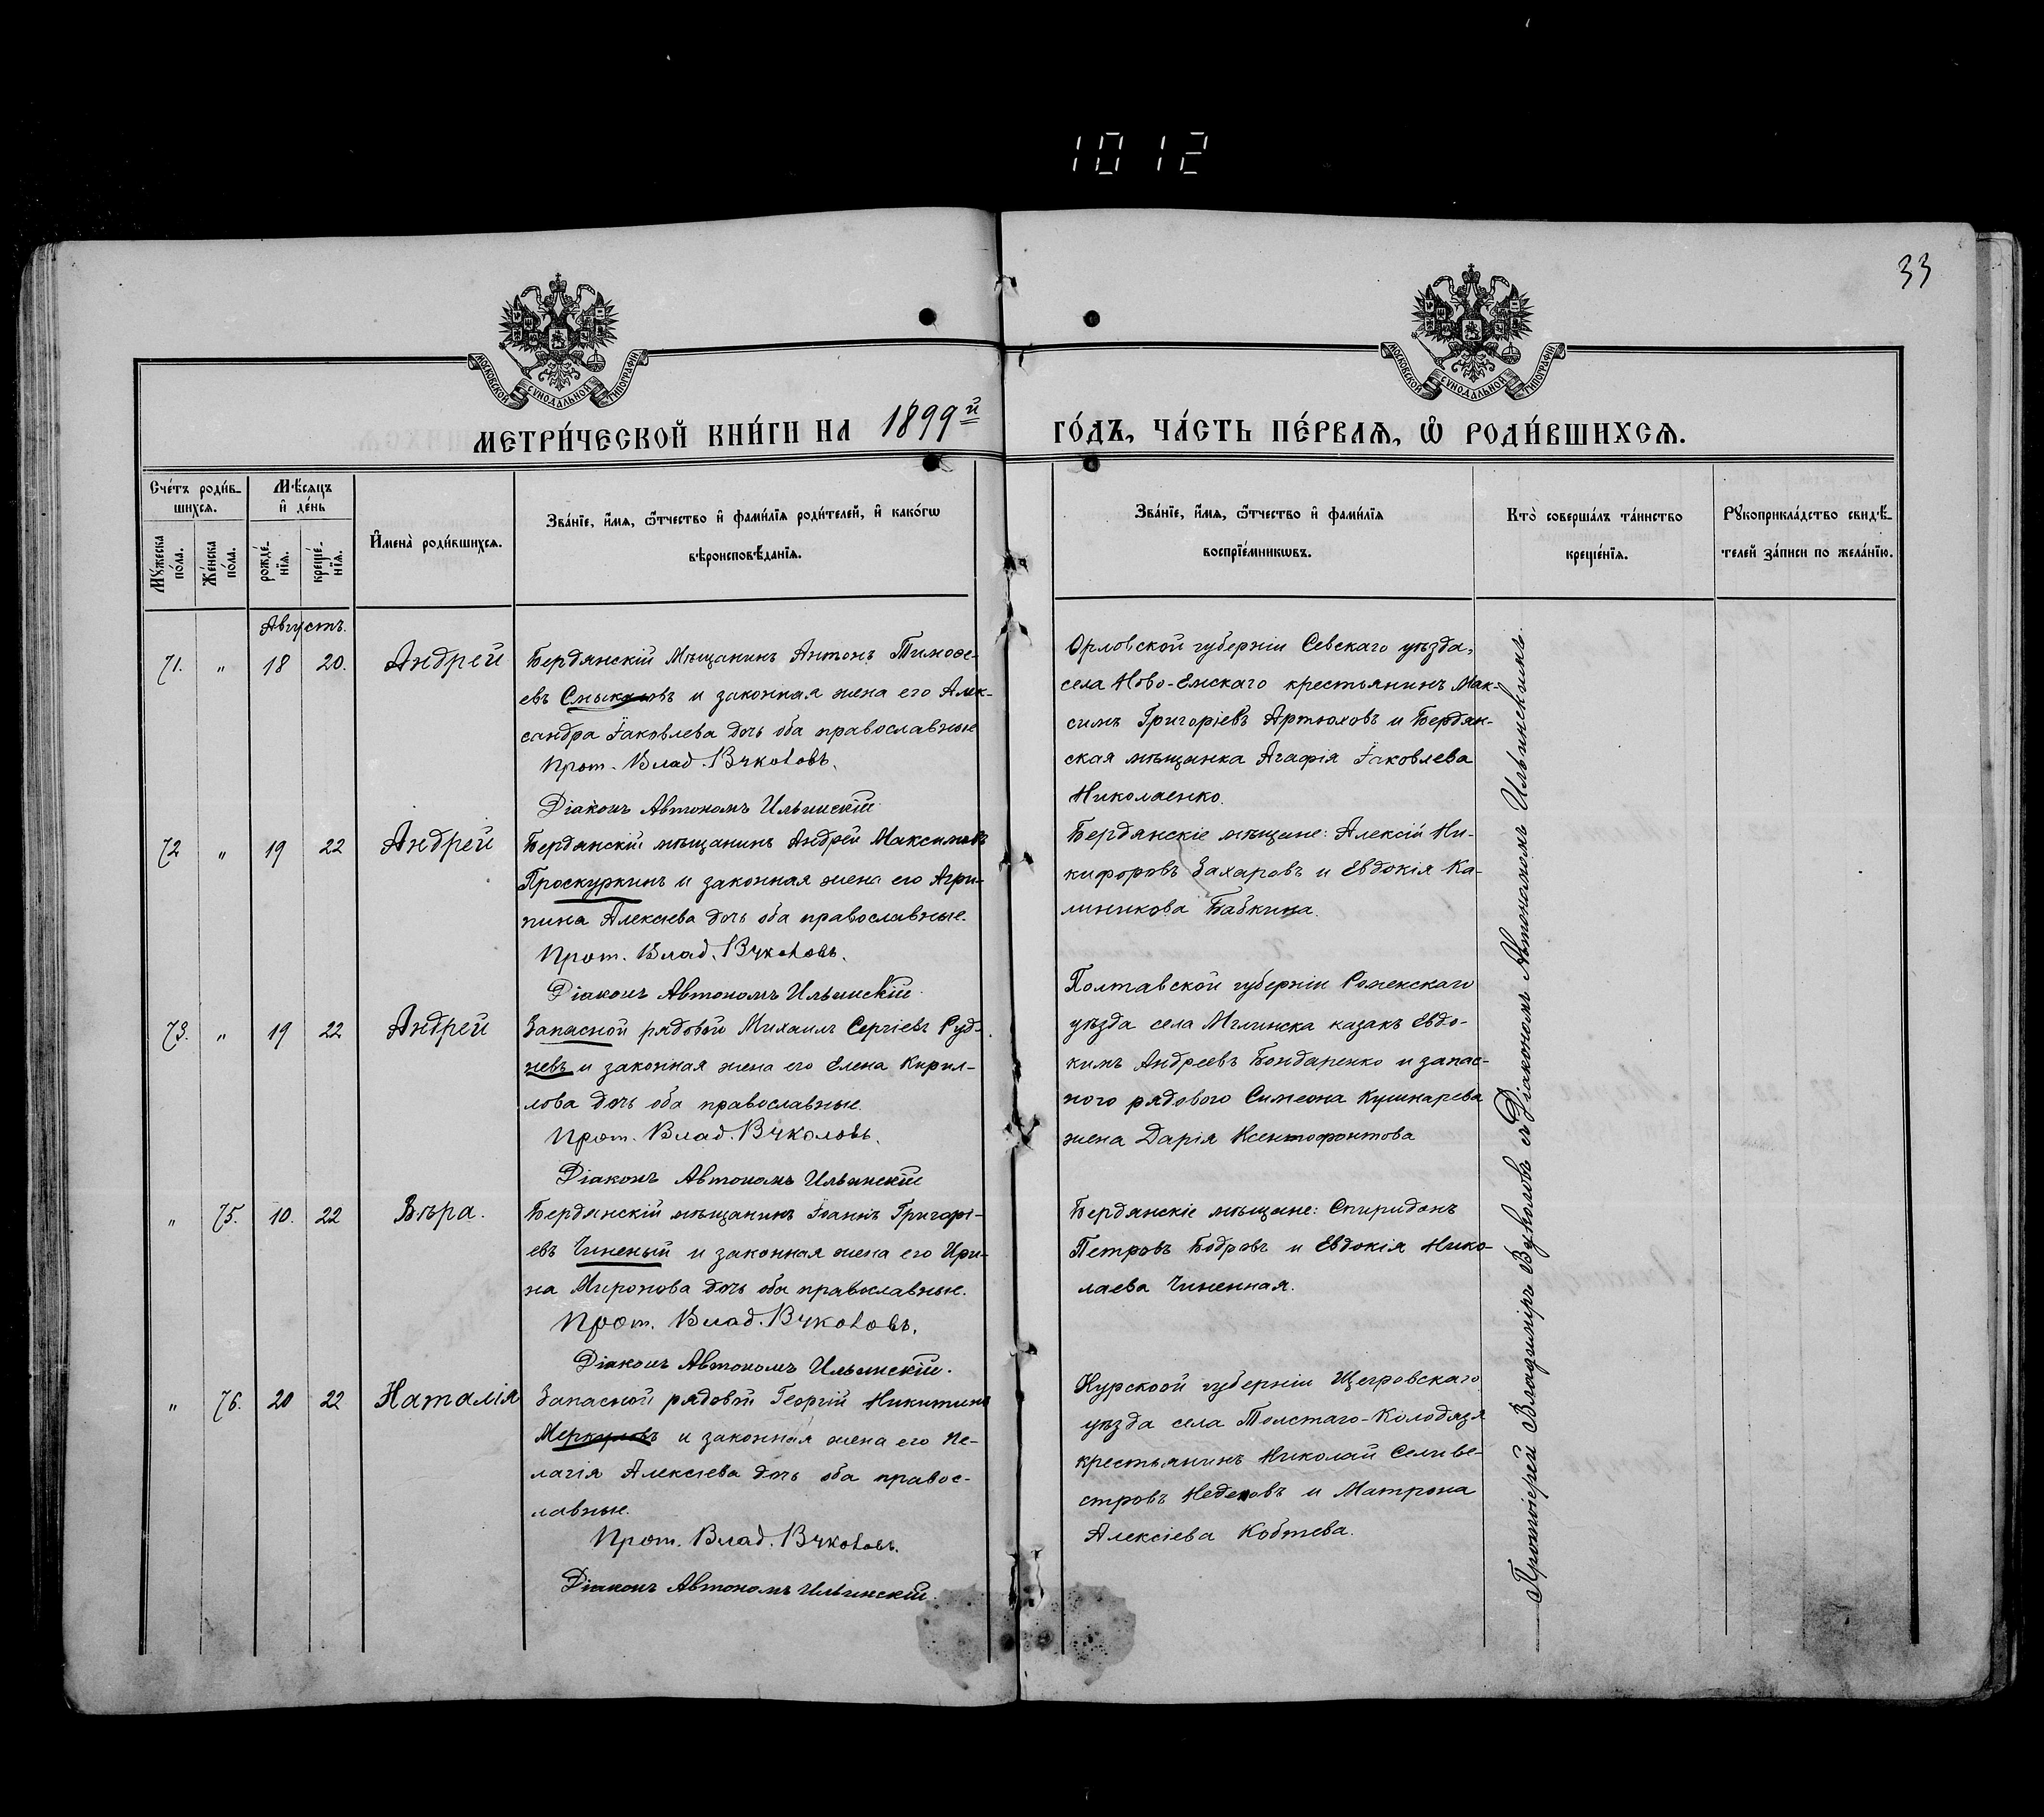 1012
33
МОСКОВСКОЙ СѴНОДАЛЬНОЙ ТИПОГРАФІИ
МОСКОВСКОЙ СѴНОДАЛЬНОЙ ТИПОГРАФІИ
МЕТРИ́ЧЕСКОЙ КНИ́ГИ НА 1899й ГО́ДЪ, ЧА́СТЬ ПЕ́РВАѦ, Ѽ РОДИ́ВШИХСѦ.
Сче́тъ роди́в-
шихсѧ.
Мѣ́сѧцъ
и҆ де́нь
Мꙋ́жеска
по́ла.
Же́нска
по́ла.
рожде́-
нїѧ.
креще́-
нїѧ.
И҆мена̀ роди́вшихсѧ.
Зва́нїе, и҆́мѧ, ѻ҆́тчество и҆ фами́лїѧ роди́телей, и҆ како́гѡ
вѣроисповѣ́данїѧ.
Зва́нїе, и҆́мѧ, ѻ҆́тчество и҆ фами́лїѧ
воспрїе́мникѡвъ.
Кто̀ соверша́лъ та́инство
креще́нїѧ.
Рꙋкоприкла́дство свидѣ́-
телей за́писи по жела́нїю.
Августъ.
71. " 18 20. Андрей
Бердянскій Мѣщанинъ Антонъ Тимофе-
евъ и законная жена его Алек-
сандра Іаковлева дочь оба православные
Прот. Влад. Вуколовъ.
Діаконъ Автономъ Ильинскій
Орловской губерніи Севскаго уѣзда,
села Ново-Емскаго крестьянинъ Мак-
симъ Григоріевъ Артюховъ и Бердян-
ская мѣщанка Агафія Іаковлева
Николаенко.
72 " 19 22 Андрей
Бердянскій мѣщанинъ Андрей Максимовъ
Проскуркинъ и законная жена его Агри-
пина Алексѣева дочь оба православные.
Прот. Влад. Вуколовъ.
Діаконъ Автономъ Ильинскій
Бердянскіе мѣщане: Алексій Ни-
кифоровъ Захаровъ и Евдокія Ка-
линикова Бабкина.
73. " 19 22 Андрей
Запасной рядовой Михаилъ Сергіевъ Руд-
невъ и законная жена его Елена Кирил-
лова дочь оба православные.
Прот. Влад. Вуколовъ.
Діаконъ Автономъ Ильинскій
Полтавской губерніи Роменскаго
уѣзда села Мглинска казакъ Евдо-
кимъ Андреевъ Бондаренко и запас-
ного рядового Симеона Кушнарева
жена Дарія Ксенофонтова
" 75. 10. 22 Вѣра.
Бердянскій мѣщанинъ Іоаннъ Григорі-
евъ Чиненый и законная жена его Ири-
на Миронова дочь оба православные.
Прот. Влад. Вуколовъ.
Діаконъ Автономъ Ильинскій.
Бердянскіе мѣщане: Спиридонъ
Петровъ Бодровъ и Евдокія Нико-
лаева Чиненная.
" 76. 20 22 Наталія
Запасной рядовой Георгій Никитинъ
Меркуловъ и законная жена его Пе-
лагія Алексіева дочь оба правос-
лавные.
Прот. Влад. Вуколовъ.
Діаконъ Автономъ Ильинскій.
Курской губерніи Щегровскаго
уѣзда села Толстаго-Колодязя
крестьянинъ Николай Селиве-
стровъ и Матрона
Алексіева Кобтева.
Протоіерей Владиміръ Вуколовъ съ Діакономъ Автономомъ Ильинскимъ.